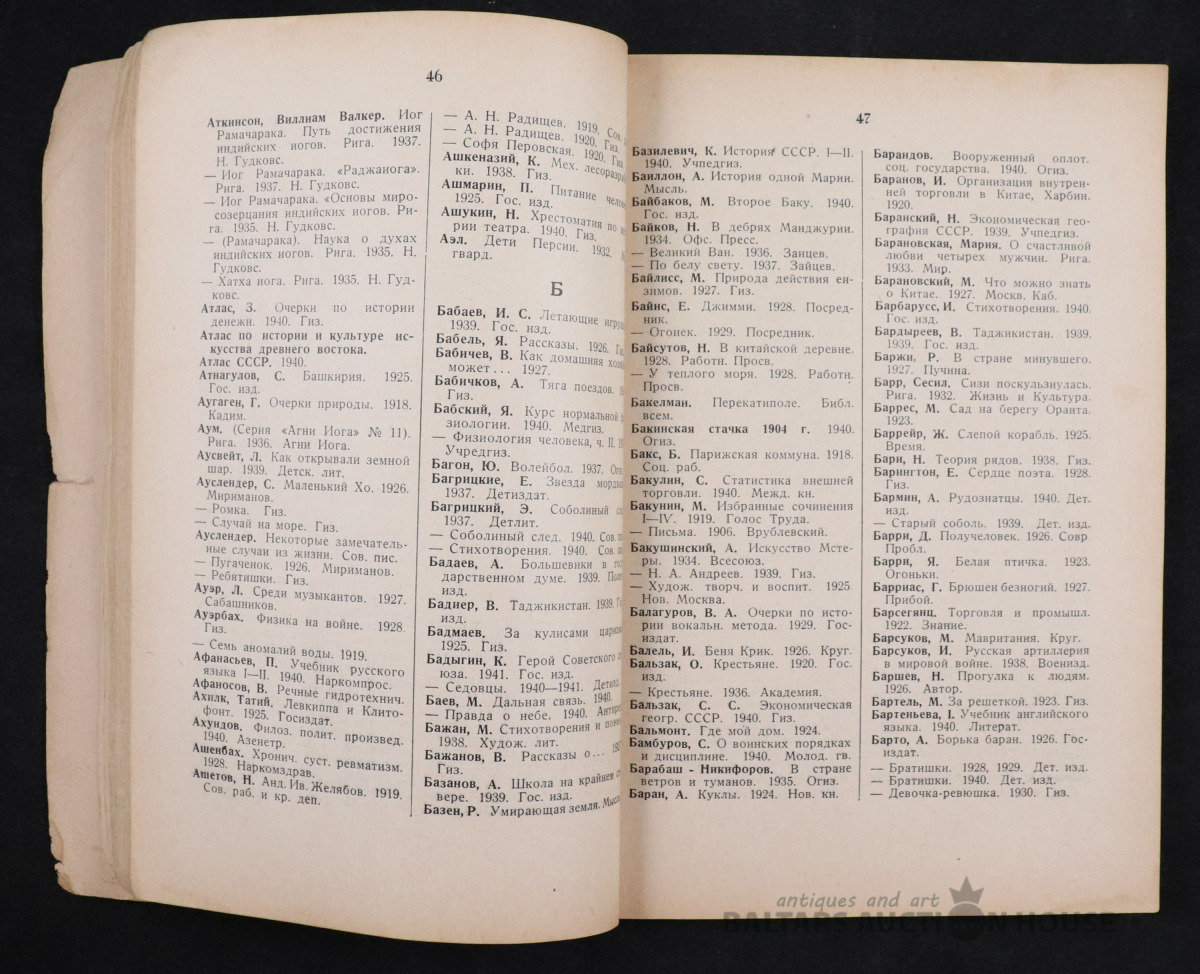 46
Аткинсон, Виллиам Валкер. Иог
Рамачарака. Путь достижения
индийских иогов. Рига. 1937.
Н. Гудковс.
— Иог Рамачарака. «Раджаиога».
Рига. 1937. Н. Гудковс.
— Иог Рамачарака. «Основы миро-
созерцания индийских иогов. Ри-
га. 1935. Н. Гудковс.
— (Рамачарака). Наука о духах
индийских иогов. Рига. 1935. Н.
Гудковс.
— Хатха иога. Рига. 1935. Н. Гуд-
ковс.
Атлас, З. Очерки по истории
денежн. 1940. Гиз.
Атлас по истории и культуре ис-
кусства древнего востока.
Атлас СССР. 1940.
Атнагулов, С. Башкирия. 1925.
Гос. изд.
Аугаген, Г. Очерки природы. 1918.
Кадим.
Аум. (Серия «Агни Иога» № 11).
Рига. 1936. Агни Иога.
Аусвейт, Л. Как открывали земной
шар. 1939. Детск. лит.
Ауслендер, С. Маленький Хо. 1926.
Мириманов.
— Ромка. Гиз.
— Случай на море. Гиз.
Ауслендер. Некоторые замечатель-
ные случаи из жизни. Сов. пис.
— Пугаченок. 1926. Мириманов.
— Ребятишки. Гиз.
Ауэр, Л. Среди музыкантов. 1927.
Сабашников.
Ауэрбах. Физика на войне. 1928.
Гиз.
— Семь аномалий воды. 1919.
Афанасьев, П. Учебник русского
языка I—II. 1940. Наркомпрос.
Афаносов, В. Речные гидротехнич.
Ахилк, Татий. Левкиппа и Клито-
фонт. 1925. Госиздат.
Ахундов. Филоз. полит. произвед.
1940. Азенетр.
Ашенбах. Хронич. суст. ревматизм.
1928. Наркомздрав.
Ашетов, Н. Анд. Ив. Желябов. 1919.
Сов. раб. и кр. деп.
— А. Н. Радищев. 1919. Сов.
— А. Н. Радищев. 1920. Гиз.
— Софья Перовская. 1920. Гиз.
Ашкеназий, К. Мех. лесоразра
ки. 1938. Гиз.
Ашмарин, П. Питание челов
1925. Гос. изд.
Ашукин, Н. Хрестоматия по
рии театра. 1940. Гиз.
Аэл. Дети Персии. 1932.
гвард.
Б
Бабаев, И. С. Летающие игру
1939. Гос. изд.
Бабель, Я. Рассказы. 1926.
Бабичев, В. Как домашняя хоз
может... 1927.
Бабичков, А. Тяга поездов.
Гиз.
Бабский, Я. Курс нормальной
зиологии. 1940. Медгиз.
— Физиология человека, ч. II.
Учредгиз.
Багон, Ю. Волейбол. 1937.
Багрицкие, Е. Звезда мордв
1937. Детиздат.
Багрицкий, Э. Соболиный
1937. Детлит.
— Соболиный след. 1940. Сов.
— Стихотворения. 1940. Сов.
Бадаев, А. Большевики в го
дарственном думе. 1939.
изд.
Бадиер, В. Таджикистан. 1939.
изд.
Бадмаев. За кулисами цариз
1925. Гиз.
Бадыгин, К. Герой Советского
юза. 1941. Гос. изд.
— Седовцы. 1940—1941.
Баев, М. Дальная связь. 1940.
— Правда о небе. 1940.
Бажан, М. Стихотворения и
1938. Худож. лит.
Бажанов, В. Рассказы о...
Гиз.
Базанов, А. Школа на крайнем
вере. 1939. Гос. изд.
Базен, Р. Умирающая земля.
47
Базилевич, К. История СССР. I—II.
1940. Учпедгиз.
Баиллон, А. История одной Марии.
Мысль.
Байбаков, М. Второе Баку. 1940.
Гос. изд.
Байков, Н. В дебрях Манджурии.
1934. Офс. Пресс.
— Великий Ван. 1936. Заицев.
— По белу свету. 1937. Зайцев.
Байлисс, М. Природа действия ен-
зимов. 1927. Гиз.
Байнс, Е. Джимми. 1928. Посред-
ник.
— Огонек. 1929. Посредник.
Байсутов, Н. В китайской деревне.
1928. Работн. Просв.
— У теплого моря. 1928. Работн.
Просв.
Бакелман. Перекатиполе. Библ.
всем.
Бакинская стачка 1904 г. 1940.
Огиз.
Бакс, Б. Парижская коммуна. 1918.
Соц. раб.
Бакулин, С. Статистика внешней
торговли. 1940. Межд. кн.
Бакунин, М. Избранные сочинения
I—IV. 1919. Голос Труда.
— Письма. 1906. Врублевский.
Бакушинский, А. Искусство Мсте-
ры. 1934. Всесоюз.
— Н. А. Андреев. 1939. Гиз.
— Худож. творч. и воспит. 1925
Нов. Москва.
Балагуров, В. А. Очерки по исто-
рии вокальн. метода. 1929. Гос-
издат.
Балель, И. Беня Крик. 1926. Круг.
Бальзак, О. Крестьяне. 1920. Гос.
изд.
— Крестьяне. 1936. Академия.
Бальзак, С. С. Экономическая
геогр. СССР. 1940. Гиз.
Бальмонт. Где мой дом. 1924.
Бамбуров, С. О воинских порядках
и дисциплине. 1940. Молод. гв.
Барабаш - Никифоров. В стране
ветров и туманов. 1935. Огиз.
Баран, А. Куклы. 1924. Нов. кн.
Барандов. Вооруженный оплот.
соц. государства. 1940. Огиз.
Баранов, И. Организация внутрен-
ней торговли в Китае, Харбин.
1920.
Баранский, Н. Экономическая гео-
графия СССР. 1939. Учпедгиз.
Барановская, Мария. О счастливой
любви четырех мужчин. Рига.
1933. Мир.
Барановский, М. Что можно знать
о Китае. 1927. Москв. Каб.
Барбарусс, И. Стихотворения. 1940.
Гос. изд.
Бардыреев, В. Таджикистан. 1939.
1939. Гос. изд.
Баржи, Р. В стране минувшего.
1927. Пучина.
Барр, Сесил. Сизи поскульзнулась.
Рига. 1932. Жизнь и Культура.
Баррес, М. Сад на берегу Оранта.
1923.
Баррейр, Ж. Слепой корабль. 1925.
Время.
Бари, Н. Теория рядов. 1938. Гиз.
Барингтон, Е. Сердце поэта. 1928.
Гиз.
Бармин, А. Рудознатцы. 1940. Дет.
изд.
— Старый соболь. 1939. Дет. изд.
Барри, Д. Получеловек. 1926. Совр
Пробл.
Барри, Я. Белая птичка. 1923.
Огоньки.
Барриас, Г. Брюшен безногий. 1927.
Прибой.
Барсегянц. Торговля и промышл.
1922. Знание.
Барсуков, М. Мавритания. Круг.
Барсуков, И. Русская артиллерия
в мировой войне. 1938. Военизд.
Баршев, Н. Прогулка к людям.
1926. Автор.
Бартель, М. За решеткой. 1923. Гиз.
Бартеньева, I. Учебник английского
языка. 1940. Литерат.
Барто, А. Борька баран. 1926. Гос-
издат.
— Братишки. 1928, 1929. Дет. изд.
— Братишки. 1940. Дет. изд.
— Девочка-ревюшка. 1930. Гиз.
antiques and art
BALTARS AUCTION HOUSE